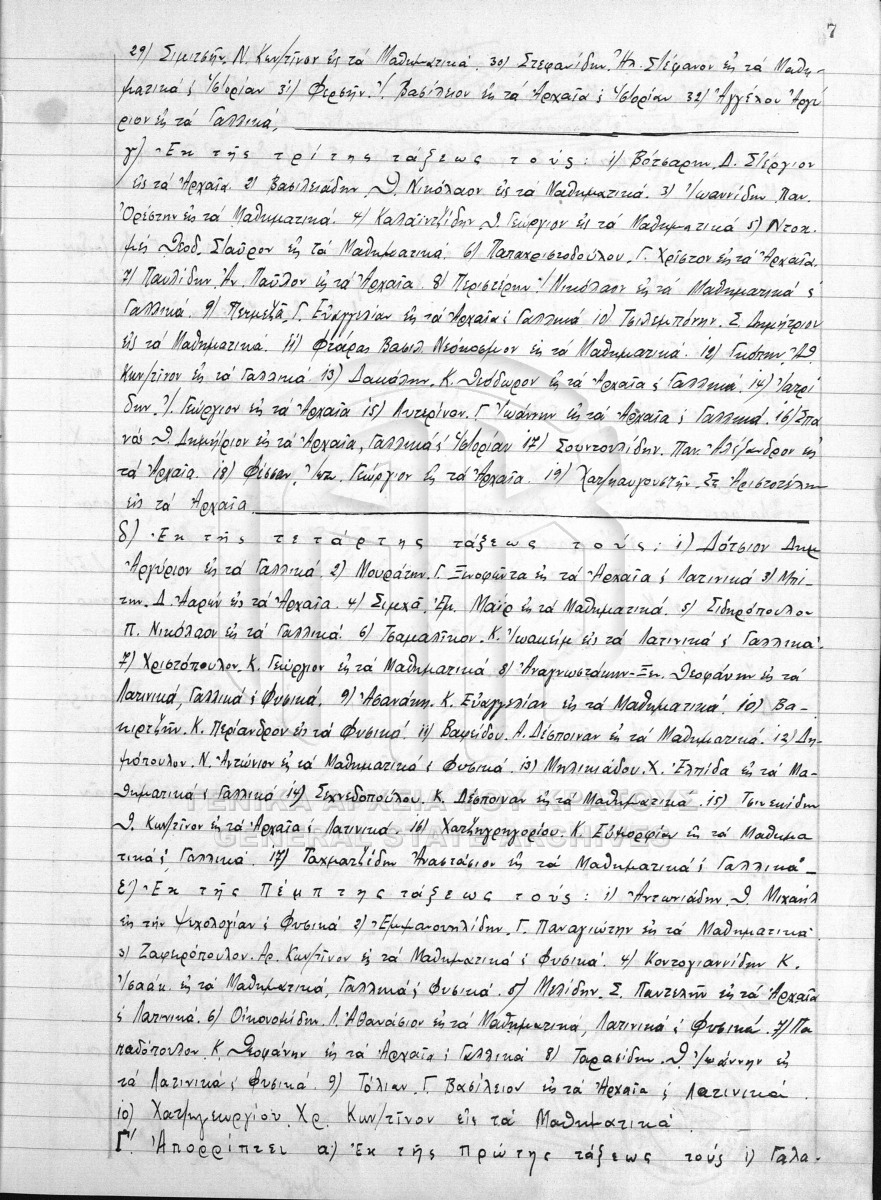 7
29) Σιμιτσῆν. Ν. Κων/τῖνον εἰς τά Μαθηματικά. 30) Στεφανίδην. Ἠλ. Στέφανον εἰς τά Μαθη-
ματικά ϛ Ἱστορίαν 31) Φερσῆν. Ἰ. Βασίλειον εἰς τά Ἀρχαῖα ϛ Ἱστορίαν 32) Ἀγγέλου Ἀργύ
ριον εἰς τά Γαλλικά,
γ) Ἐκ τῆς τρίτης τάξεως τούς: 1) Βότσαρην. Δ. Στέργιον
εἰς τά Ἀρχαῖα 2) Βασιλειάδην. Θ. Νικόλαον εἰς τά Μαθηματικά. 3) Ἰωαννίδην Παν.
Ὀρέστην εἰς τά Μαθηματικά. 4) Καλαϊντζίδην. Θ. Γεώργιον εἰς τά Μαθηματικά 5) Ντοκ-
μές Θεοδ. Σταῦρον εἰς τά Μαθηματικά. 6) Παπαχριστοδούλου. Γ. Χρῖστον εἰς τά Ἀρχαῖα.
7) Παυλίδην. Ἀν. Παῦλον εἰς τά Ἀρχαῖα. 8) Περιστέρην Ἰ. Νικόλαον εἰς τά Μαθηματικά ϛ
Γαλλικά. 9) Πετμεζᾶ, Γ. Εὐαγγελίαν εἰς τά Ἀρχαῖα ϛ Γαλλικά 10) Τσιλεμπόνην. Σ. Δημήτριον
εἰς τά Μαθηματικά. 11) Φτάρας Βασιλ. Νεόκοσμον εἰς τά Μαθηματικά. 12) Γκόπην. Ἀθ.
Κων/τῖνον εἰς τά Γαλλικά 13) Δαμάλην. Κ. Θεόδωρον εἰς τά Ἀρχαῖα ϛ Γαλλικά. 14) Ἰατρί
δην. Ἰ. Γεώργιον εἰς τά Ἀρχαῖα 15) Λυτερίνον. Γ. Ἰωάννην εἰς τά Ἀρχαῖα ϛ Γαλλικά. 16) Σπα
νόν Θ. Δημήτριον εἰς τά Ἀρχαῖα, Γαλλικά ϛ Ἱστορίαν 17) Σουντουλίδην. Παν. Ἀλέξανδρον εἰς
τά Ἀρχαῖα. 18) Φέσσαν. Ἰω. Γεώργιον εἰς τά Ἀρχαῖα. 19) Χατζηαυγουστῆν. Στ. Ἀριστοτέλην
εἰς τά Ἀρχαῖα
δ) Ἐκ τῆς τετάρτης τάξεως τούς: 1) Δότσιον Δημ
Ἀργύριον εἰς τά Γαλλικά. 2) Μουράτην. Γ. Ξενοφῶντα εἰς τά Ἀρχαῖα ϛ Λατινικά 3) Μπί-
την. Δ. Ἀαρών εἰς τά Ἀρχαῖα. 4) Σιμχᾶ. Ἐμ. Μαίρ εἰς τά Μαθηματικά. 5) Σιδηρόπουλον
Π. Νικόλαον εἰς τά Γαλλικά. 6) Τσαμαλῖκον. Κ. Ἰωακείμ εἰς τά Λατινικά ϛ Γαλλικά.
7) Χριστόπουλον. Κ. Γεώργιον εἰς τά Μαθηματικά. 8) Ἀναγνωστάκην-Ξεν. Θεοφάνην εἰς τά
Λατινικά, Γαλλικά ϛ Φυσικά. 9) Ἀθανάκη. Κ. Εὐαγγελίαν εἰς τά Μαθηματικά. 10) Βα-
κιρτζῆν. Κ. Περίανδρον εἰς τά Φυσικά. 11) Βαφείδου. Α. Δέσποιναν εἰς τά Μαθηματικά. 12) Δη-
μόπουλον. Ν. Ἀντώνιον εἰς τά Μαθηματικά ϛ Φυσικά. 13) Μηλικιάδου. Χ. Ἐλπίδα εἰς τά Μα-
θηματικά ϛ Γαλλικά 14) Σεχνεδοπούλου. Κ. Δέσποιναν εἰς τά Μαθηματικά. 15) Τσινεκίδην
Θ. Κων/τῖνον εἰς τά Ἀρχαῖα ϛ Λατινικά. 16) Χατζηγρηγορίου. Κ. Εὐμορφίαν εἰς τά Μαθημα
τικά ϛ Γαλλικά. 17) Ταχματζίδην Ἀναστάσιον εἰς τά Μαθηματικά ϛ Γαλλικά-
ΓΕΝΙΚΑ ΑΡΧΕΙΑ ΤΟΥ ΚΡΑΤΟΥΣ
GENERAL STATE ARCHIVES
ε) Ἐκ τῆς Πέμπτης τάξεως τούς: 1) Ἀντωνιάδην. Θ. Μιχαήλ
εἰς τήν Ψυχολογίαν ϛ Φυσικά 2) Ἐμμανουηλίδην. Γ. Παναγιώτην εἰς τά Μαθηματικά.
3) Ζαφειρόπουλον. Αρ. Κων/τῖνον εἰς τά Μαθηματικά ϛ Φυσικά. 4) Κοντογιαννίδην Κ.
Ἰσαάκ εἰς τά Μαθηματικά, Γαλλικά ϛ Φυσικά. 5) Μελίδην. Σ. Παντελῆν εἰς τά Ἀρχαῖα
ϛ Λατινικά. 6) Οἰκονομίδην. Λ. Ἀθανάσιον εἰς τά Μαθηματικά, Λατινικά ϛ Φυσικά. 7) Πα
παδόπουλον. Κ. Θεοφάνην εἰς τά Ἀρχαῖα ϛ Γαλλικά 8) Ταρασίδην. Θ. Ἰωάννην εἰς
τά Λατινικά ϛ Φυσικά. 9) Τόλιαν. Γ. Βασίλειον εἰς τά Ἀρχαῖα ϛ Λατινικά.
10) Χατζηγεωργίου. Χρ. Κων/τῖνον εἰς τά Μαθηματικά.
Γ΄. Ἀπορρίπτει α) Ἐκ τῆς πρώτης τάξεως τούς 1) Γαλα-